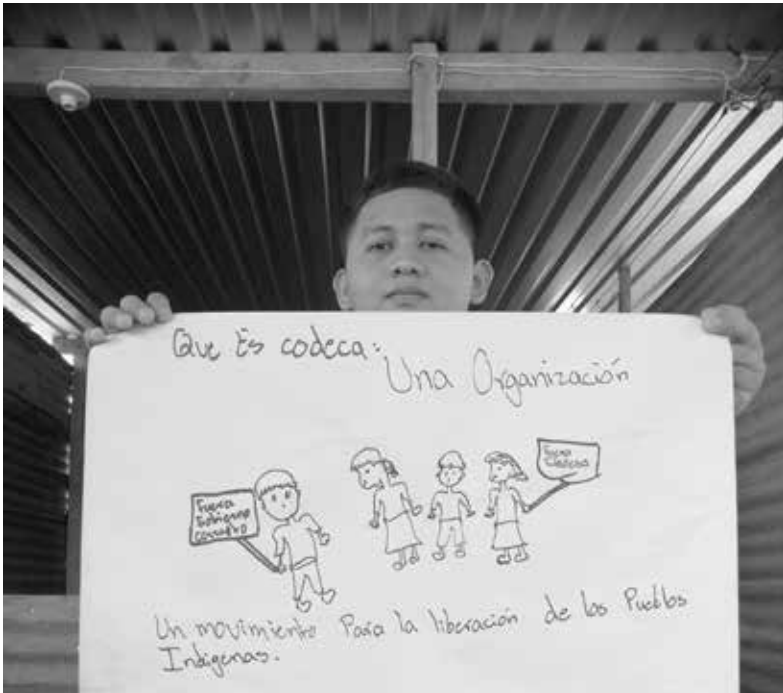 Que Es codeca:
Una Organización
Fuera
Gobierno
corrupto
Fuera
Un movimiento Para la liberación de los Pueblos
Indigenas.